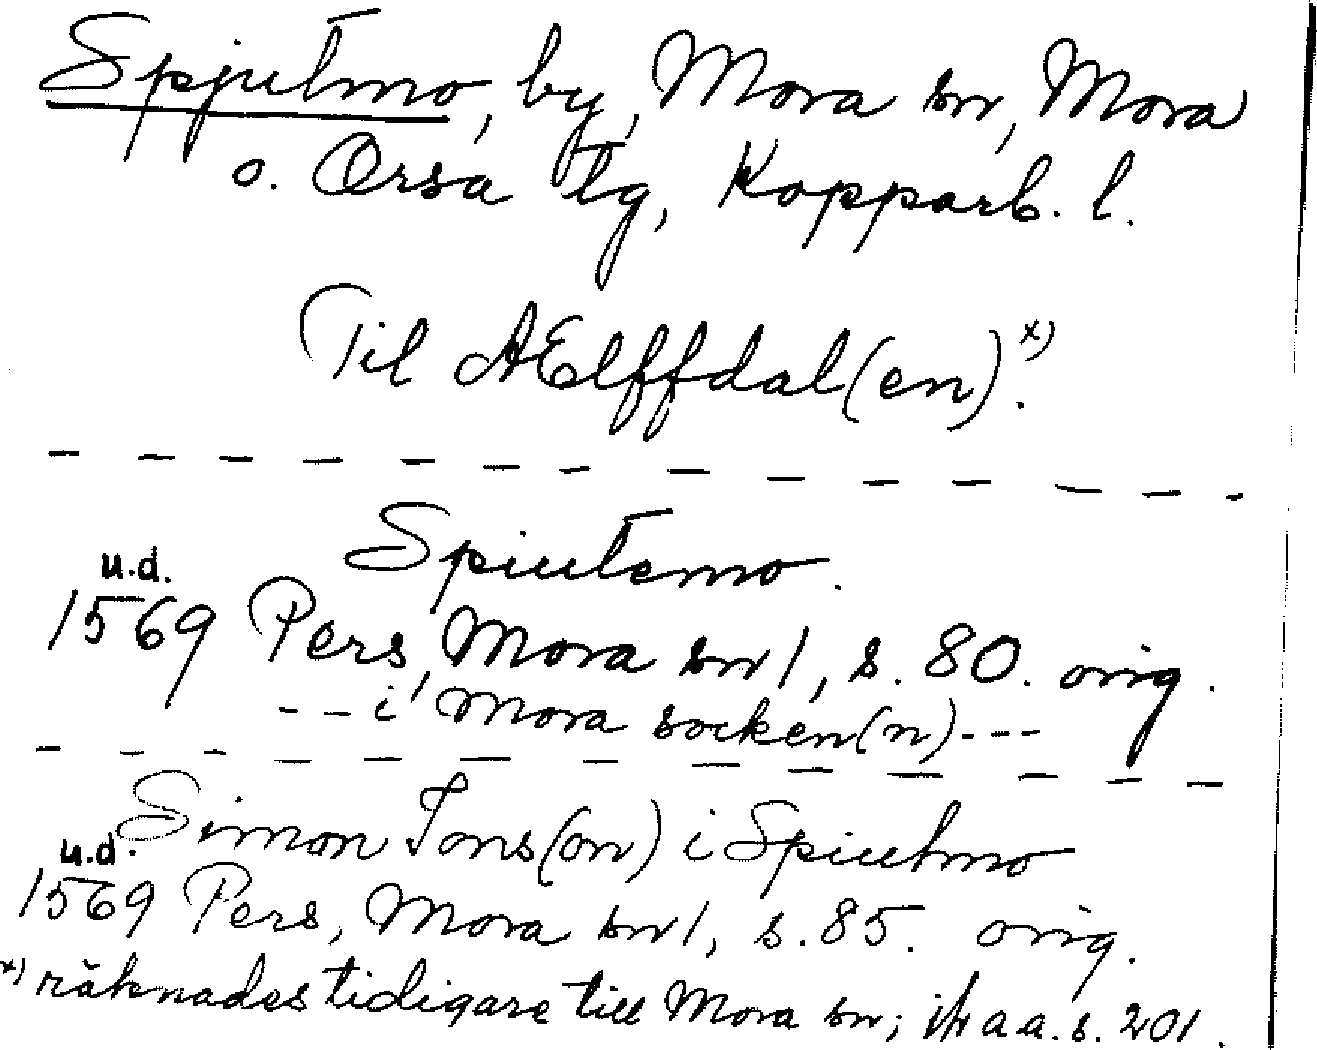 Spjutmo, by, Mora sn, Mora
o. Orsa tg, Kopparb. l.
Til AElffdal(en).x)
Spiutemo.
u.d.
1569 Pers, Mora sn 1, s. 80. orig.
--i Mora socken(n)---
Simon Jons(on) i Spiutmo
u.d.
1569 Pers, Mora sn 1, s. 85. orig.
x) räknades tidigare till Mora sn; a a. s. 201.